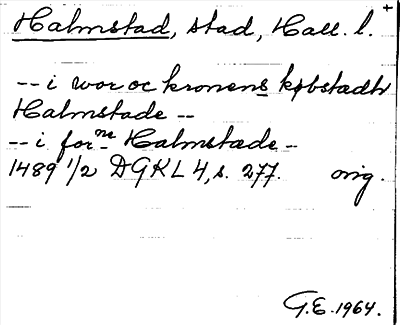 Halmstad, stad, Hall. l. +
-- i wor oc kronens købstadh
Halmstade --
-- i for ne Halmstade --
1489 1/2 DGKL 4, s. 277. orig.
G.E. 1964.